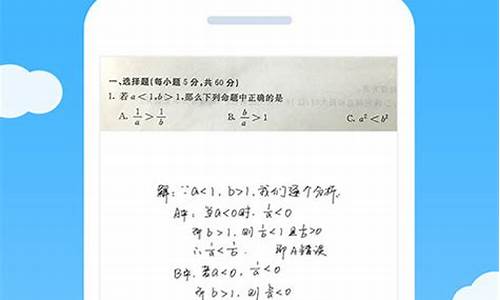 一、选择题(每小题5分,共60分)
1. 若a<1,b>1,那么下列命题中正确的是
A. 1/a>1/b B. b/a>1 C. a²<b²
解:∵a<1,b>1,我们逐个分析.
A中,当a<0时,1/a<0
而b>1,则1/b<1且1/b>0
∴1/a<1/b. 即A错误
B中,若a<0,1/a<0
而b>1,则b/a<0